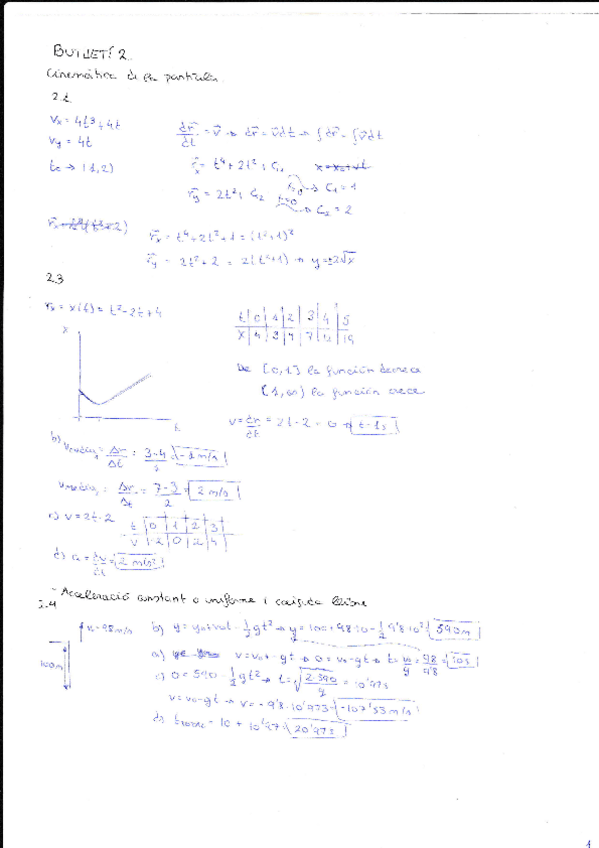 BUTLLETÍ 2.
Cinemática de la partícula.
2.1.
Vx = 4t³ + 4t
Vy = 4t
t0 → (1,2)
dr/dt = v → dr = v dt → ∫dr = ∫v dt
rx = t⁴ + 2t² + C1
t=0 → C1 = 1
ry = 2t² + C2
t=0 → C2 = 2
rx = t⁴ + 2t² + 1 = (t² + 1)²
ry = 2t² + 2 = 2(t² + 1) → y = ±2√x
2.3
rx = x(t) = t² - 2t + 4
x
t
t | 0 | 1 | 2 | 3 | 4 | 5
x | 4 | 3 | 4 | 7 | 12 | 19
De [0,1] la función decrece
[1,∞) la función crece
v = dr/dt = 2t - 2 = 0 → t = 1s
b) Vmedia = Δr/Δt = 3-4/1 = -1 m/s
Vmedia = Δr/Δt = 7-3/2 = 2 m/s
c) v = 2t - 2
t | 0 | 1 | 2 | 3
v | -2 | 0 | 2 | 4
d) a = dv/dt = 2 m/s²
- Acceleració constant o uniforme i caiguda lliure
2.4
v = 98 m/s
100m
b) y = y0 + v0t - 1/2 gt² → y = 100 + 98·10 - 1/2 9'8·10² = 590m
a) v = v0 - gt → 0 = v0 - gt → t = v0/g = 98/9'8 = 10s
c) 0 = 590 - 1/2 gt² → t = √(2·590/g) = 10'97s
v = v0 - gt → v = -9'8·10'973 = -107'53 m/s
d) = 10 + 10'97 = 20'97s
1